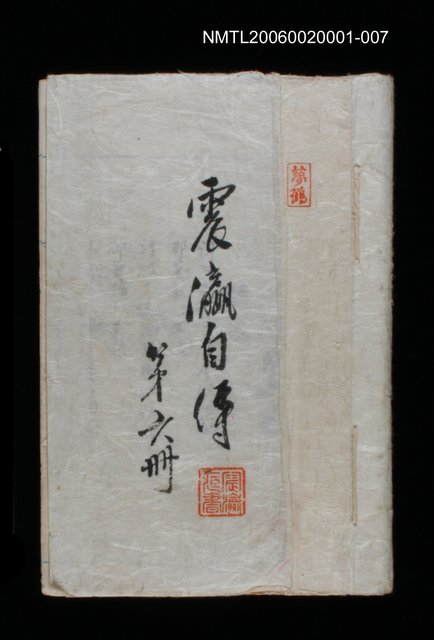 NMTL20060020001-007
夢鶴
震瀛自傳
第六冊
震瀛
藏書